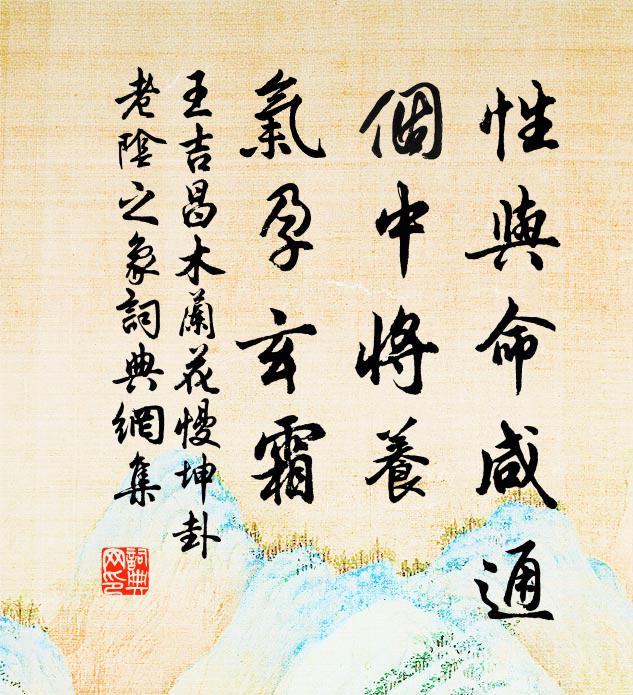 性與命咸通
個中將養
氣孕玄霜
王吉昌木蘭花慢坤卦
老陰之象詞典網集
詞典网印